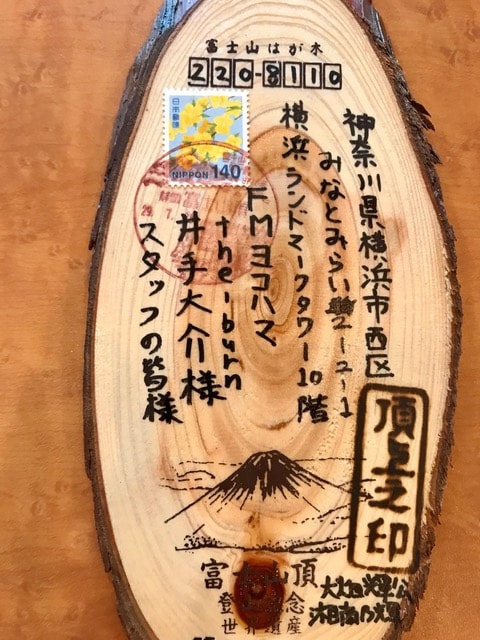 富士山はが木
220-8110
日本郵便
NIPPON 140
神奈川県横浜市西区
みなとみらい2-2-1
横浜ランドマークタワー10階
FMヨコハマ
the burn
井手大介様
スタッフの皆様
頂上之印
富士山頂
世界遺産